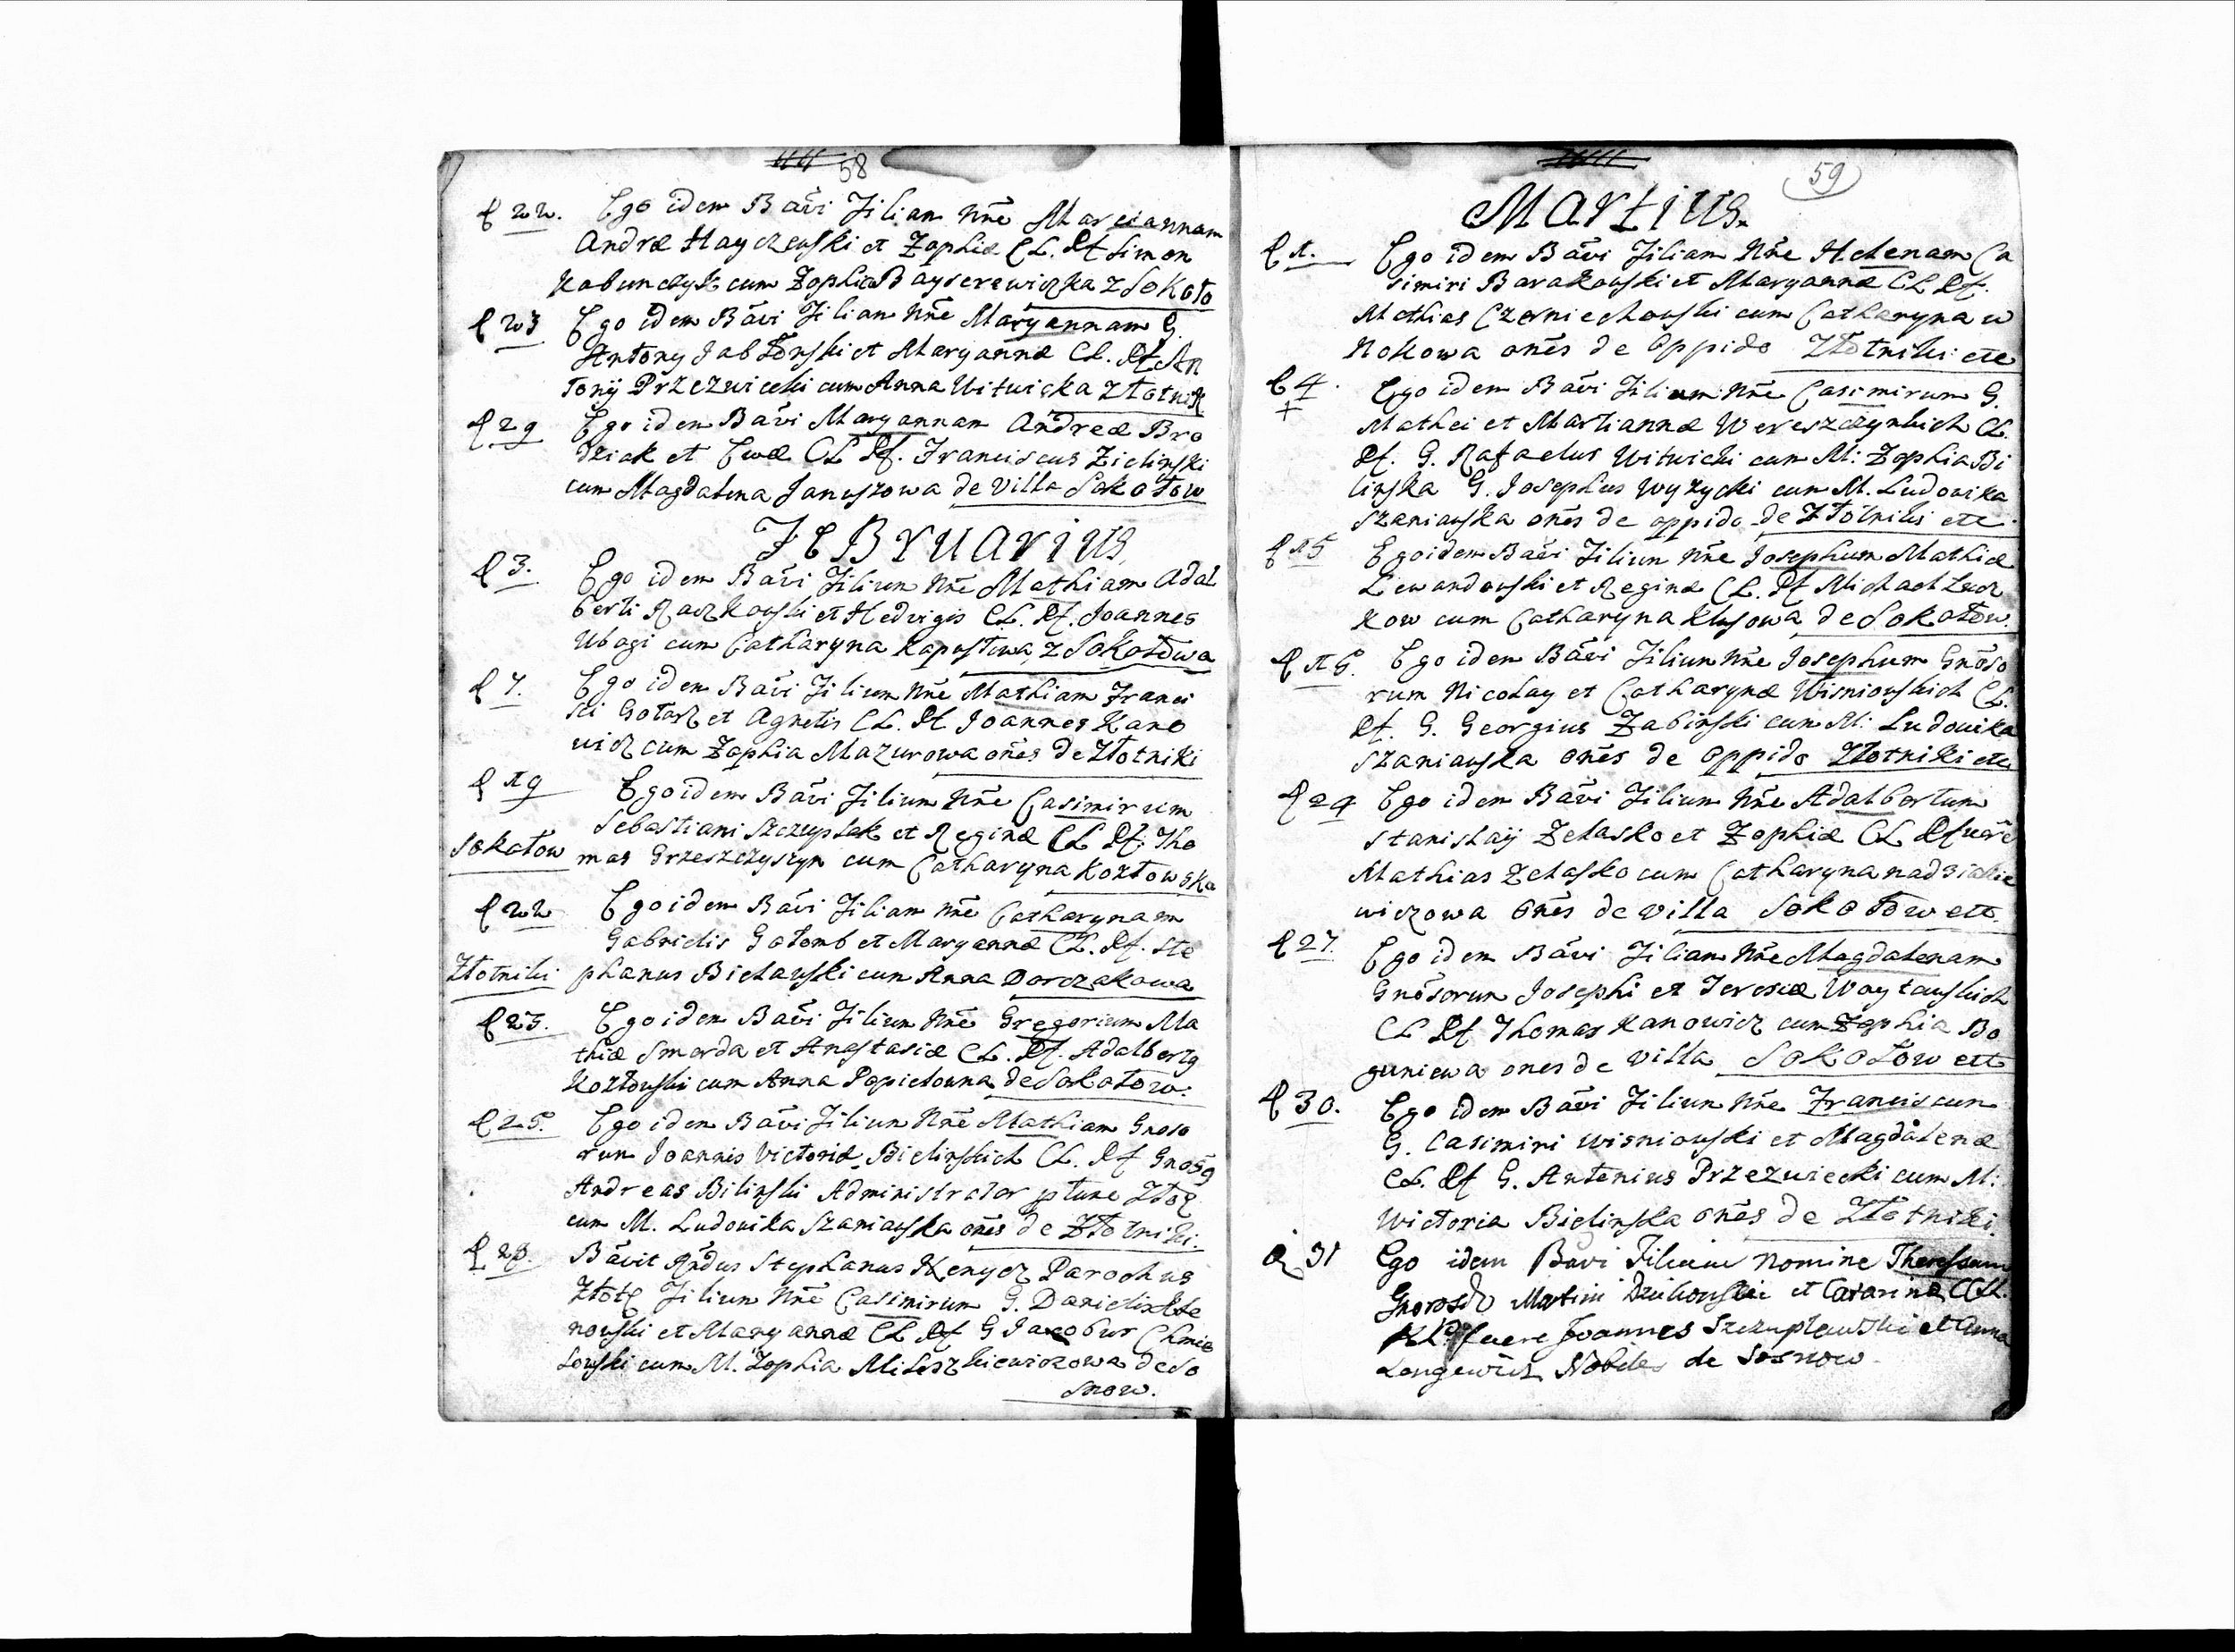 58
d 22. Ego idem Bavi Filiam Nne Mareiannam
Andræ Hayczewski et Zophiæ CL. Pf Simon
Kabunczyk cum Zophia Bayserewiczka z Sokoło
d 23 Ego idem Bavi Filiam Nne Maryannam G.
Antony Jabłonski et Maryannæ CL. Pf An
tonij Przezwicchi cum Anna Witwicka Złotnik
d 29 Ego idem Bavi Maryannam Andreæ Bro
dziak et Ewæ CL Pf. Franciscus Zielinski
cum Magdalena Januszowa de Villa Sokołow
FEBRUARIUS
d 3. Ego idem Bavi Filium Nne Mathiam Adal
berti Raczkowski et Hedvigis CL. Pf. Joannes
Ubogi cum Catharyna Kapustina z Sokołowa
d 7. Ego idem Bavi Filium Nne Mathiam Franci
sci Gołacz et Agnetis CL. Pf Joannes Kano
wicz cum Zophia Mazurowa ones de Złotniki
d 19 Ego idem Bavi Filium Nne Casimirum
Sebastiani Szczupłak et Reginæ CL Pf. Tho
Sokołow mas Grzeszczyszyn cum Catharyna Kozłowska
d 22 Ego idem Bavi Filiam Nne Catharynam
Gabrielis Gołomb et Maryannæ CL. Pf. Ste
Złotniki phanus Bielawski cum Anna Dorczakowa
d 23. Ego idem Bavi Filium Nne Gregorium Ma
thiæ Smorda et Anastasiæ CL. Pf. Adalbertg
Kozłowski cum Anna Popielowna de Sokołow.
d 25. Ego idem Bavi Filium Nne Mathiam Gnoso
rum Joannis Victoriæ Bielinskich CL. Pf Gnosg
Andreas Bilinski Administrator ptunc Złoc
cum M. Ludovika Szaniawska ones de Złotniki.
d 28. Bavit Rndus Stephanus Kenycz Parochus
Złotc Filium Nne Casimirum G. Danielis Ste
nowski et Maryannæ CL Pf G Jacobus Chmie
lowski cum M. Zophia Mileszkiewiczowa de So
snow.
59
MARTIUS.
d 1. Ego idem Bavi Filiam Nne Helenam Ca
simiri Barakowski et Maryannæ CL Pf.
Mathias Czerniechowski cum Catharyna w
Nokowa ones de Oppido Złotniki etc
d 4. Ego idem Bavi Filium Nne Casimirum G.
+ Mathei et Martiannæ Wereszczynkich CL.
Pf. G. Rafaelus Witwicki cum M: Zophia Bi
linska G. Josephus Wyzycki cum M. Ludovika
Szaniawska ones de oppido de Złotniki etc.
d 15 Ego idem Bavi Filium Nne Josephum Mathiæ
Lewandowski et Reginæ CL. Pf Michael Lucz
kow cum Catharyna Klusowa de Sokołow.
d 16. Ego idem Bavi Filium Nne Josephum Gnoso
rum Nicolay et Catharynæ Wisniowskich CL.
Pf. G. Georgius Zabinski cum M: Ludovika
Szaniawska ones de Oppido Złotniki etc
d 24 Ego idem Bavi Filium Nne Adalbertum
Stanislaij Zelasko et Zophiæ CL Pf uere
Mathias Zelasko cum Catharyna nadziakie
wiczowa ones de villa Sokołow ett.
d 27. Ego idem Bavi Filiam Nne Magdalenam
Gnosorum Josephi et Teresiæ Woytawskich
CL Pf Thomas Kanowicz cum Zophia Bo
guniewa ones de villa Sokołow ett
d 30. Ego idem Bavi Filium Nne Franciscum
G. Casimiri Wisniowski et Magdalenæ
CL. Pf G. Antonius Przezwiecki cum M:
Wictoria Bielinska ones de Złotniki.
d 31 Ego idem Bavi Filiam Nomine Theressam
Martini et Catarinæ CLL.
fuere Joannes Szczupławski et Anna
Longewicz Nobiles de Sosnow